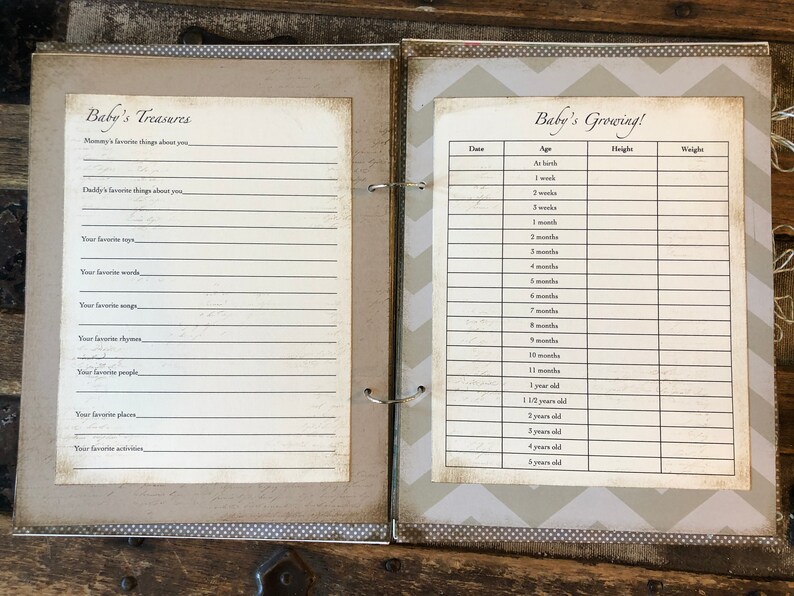 Baby's Treasures
Mommy's favorite things about you
Daddy's favorite things about you
Your favorite toys
Your favorite words
Your favorite songs
Your favorite rhymes
Your favorite people
Your favorite places
Your favorite activities
Baby's Growing!
Date Age Height Weight
At birth
1 week
2 weeks
3 weeks
1 month
2 months
3 months
4 months
5 months
6 months
7 months
8 months
9 months
10 months
11 months
1 year old
1 1/2 years old
2 years old
3 years old
4 years old
5 years old